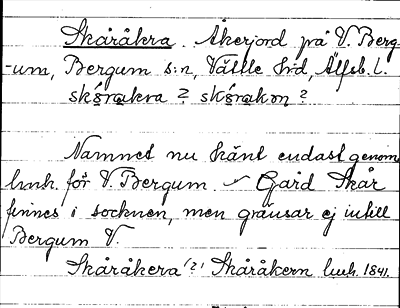 Skåråkra. Åkerjord på V. Berg-
-um, Bergum s:n, Vättle hd, Älfsb. l.
skǻrakra? skǻrakơn?
Namnet nu känt endast genom
lmh. för V. Bergum. Gård Skår
finnes i socknen, men gränsar ej intill
Bergum V.
Skåråkera '?' Skåråkern lmh. 1841.